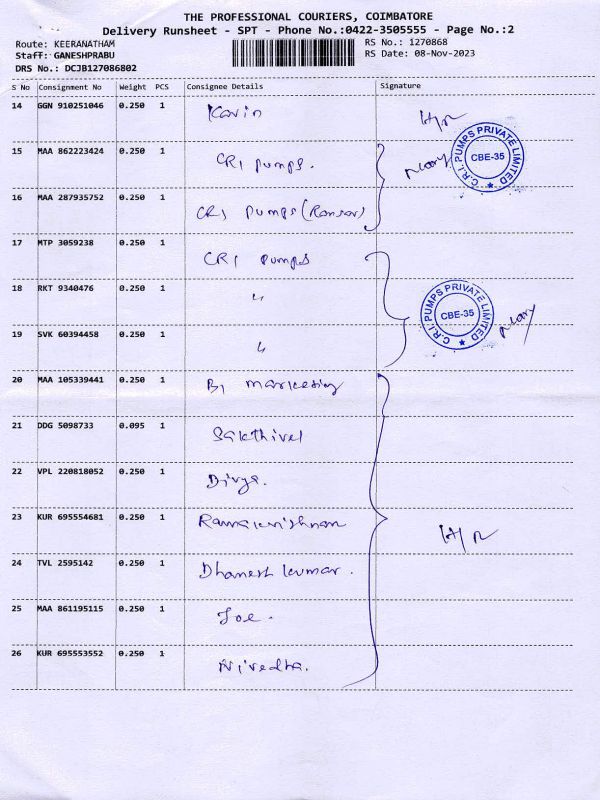 THE PROFESSIONAL COURIERS, COIMBATORE
Delivery Runsheet - SPT - Phone No.:0422-3505555 - Page No.:2
Route: KEERANATHAM RS No.: 1270868
Staff: GANESHPRABU RS Date: 08-Nov-2023
DRS No.: DCJB127086802
S No Consignment No Weight PCS Consignee Details Signature
14 GGN 910251046 0.250 1 Kavin
15 MAA 862223424 0.250 1 CRI pumps.
C.R.I. PUMPS PRIVATE LIMITED
CBE-35
16 MAA 287935752 0.250 1 CRI pumps
17 MTP 3059238 0.250 1 CRI pumps
18 RKT 9340476 0.250 1 "
C.R.I. PUMPS PRIVATE LIMITED
CBE-35
19 SVK 60394458 0.250 1 "
20 MAA 105339441 0.250 1 BI marketing
21 DDG 5098733 0.095 1 Sakthivel
22 VPL 220818052 0.250 1 Divya.
23 KUR 695554681 0.250 1 Ramakrishnan
24 TVL 2595142 0.250 1 Dhanesh kumar.
25 MAA 861195115 0.250 1 Joe.
26 KUR 695553552 0.250 1 Nivedha.